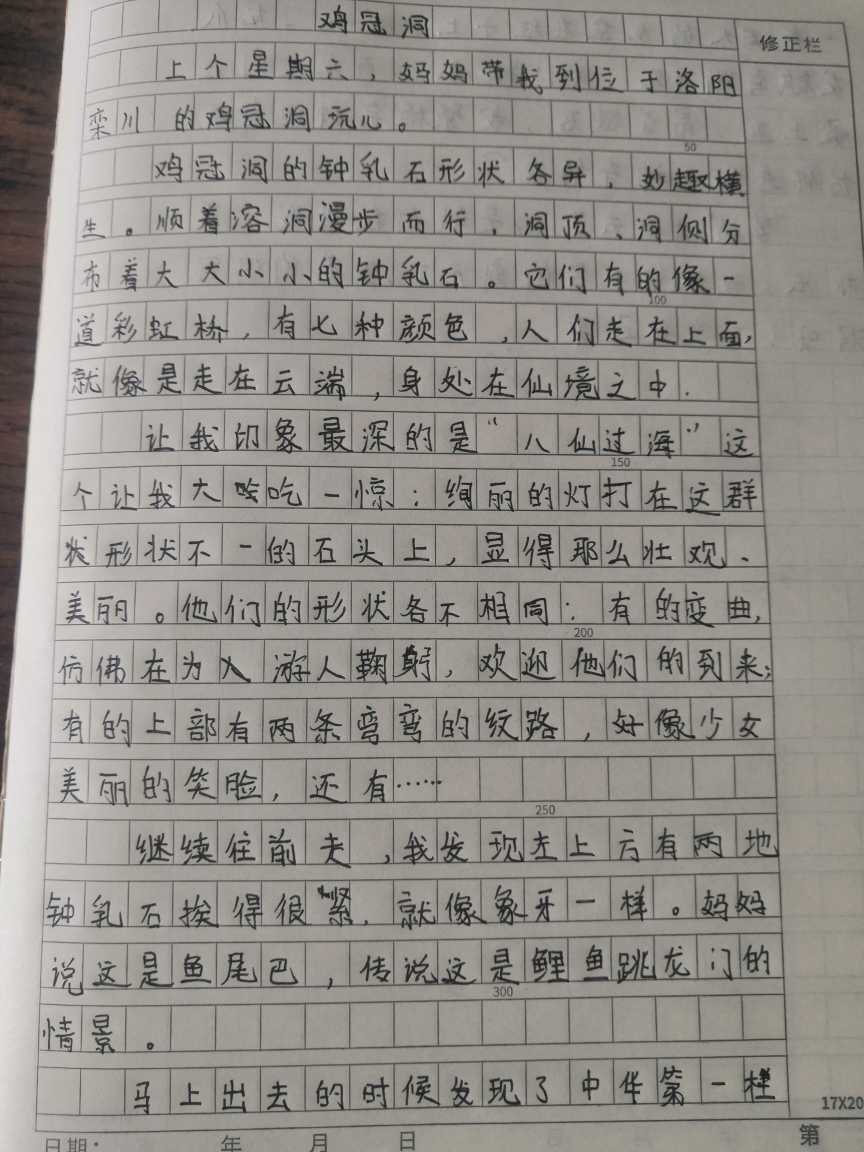 鸡冠洞
修正栏
上个星期六，妈妈带我到位于洛阳
栾川的鸡冠洞玩儿。
50
鸡冠洞的钟乳石形状各异，妙趣横
生。顺着溶洞漫步而行，洞顶、洞侧分
布着大大小小的钟乳石。它们有的像一
100
道彩虹桥，有七种颜色，人们走在上面，
就像是走在云端，身处在仙境之中.
让我印象最深的是“八仙过海”这
150
个让我大吃一惊：绚丽的灯打在这群
状形状不一的石头上，显得那么壮观、
美丽。他们的形状各不相同：有的变曲，
200
仿佛在为入游人鞠躬，欢迎他们的到来；
有的上部有两条弯弯的纹路，好像少女
美丽的笑脸，还有……
250
继续往前走，我发现左上方有两地
钟乳石挨得很紧，就像象牙一样。妈妈
说这是鱼尾巴，传说这是鲤鱼跳龙门的
300
情景。
马上出去的时候发现了中华第一柱
17X20
日期： 年 月 日 第